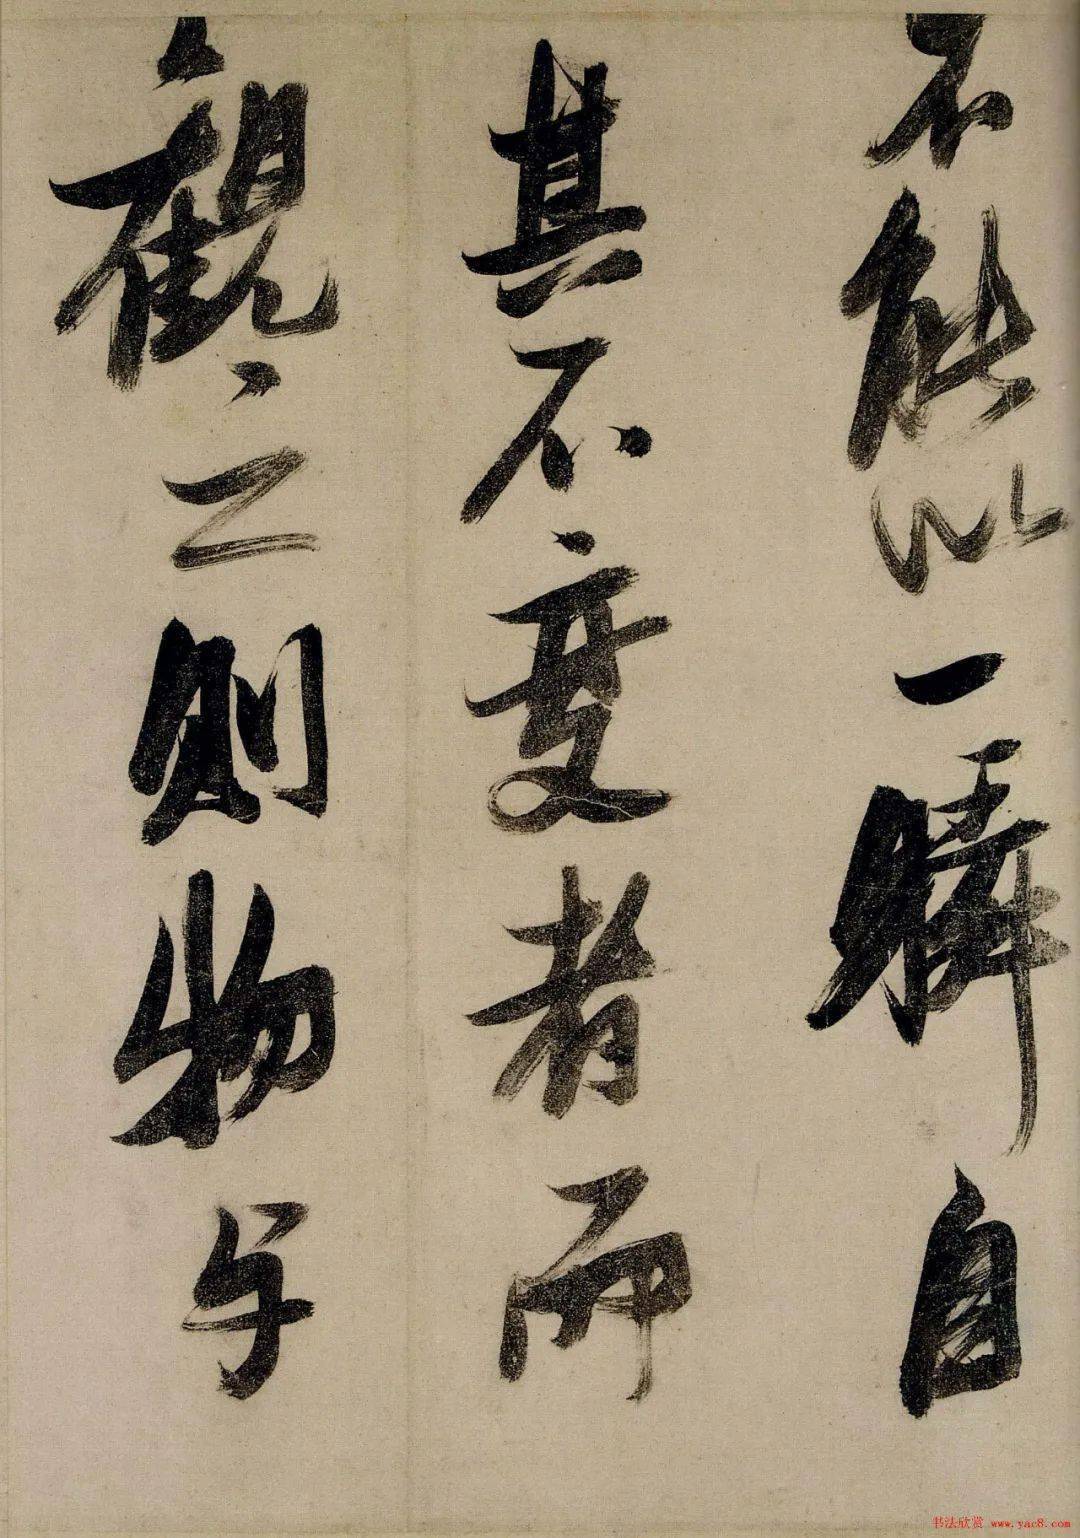 不能以一瞬自
其不變者而
觀之則物与
书法欣赏 www.yac8.com